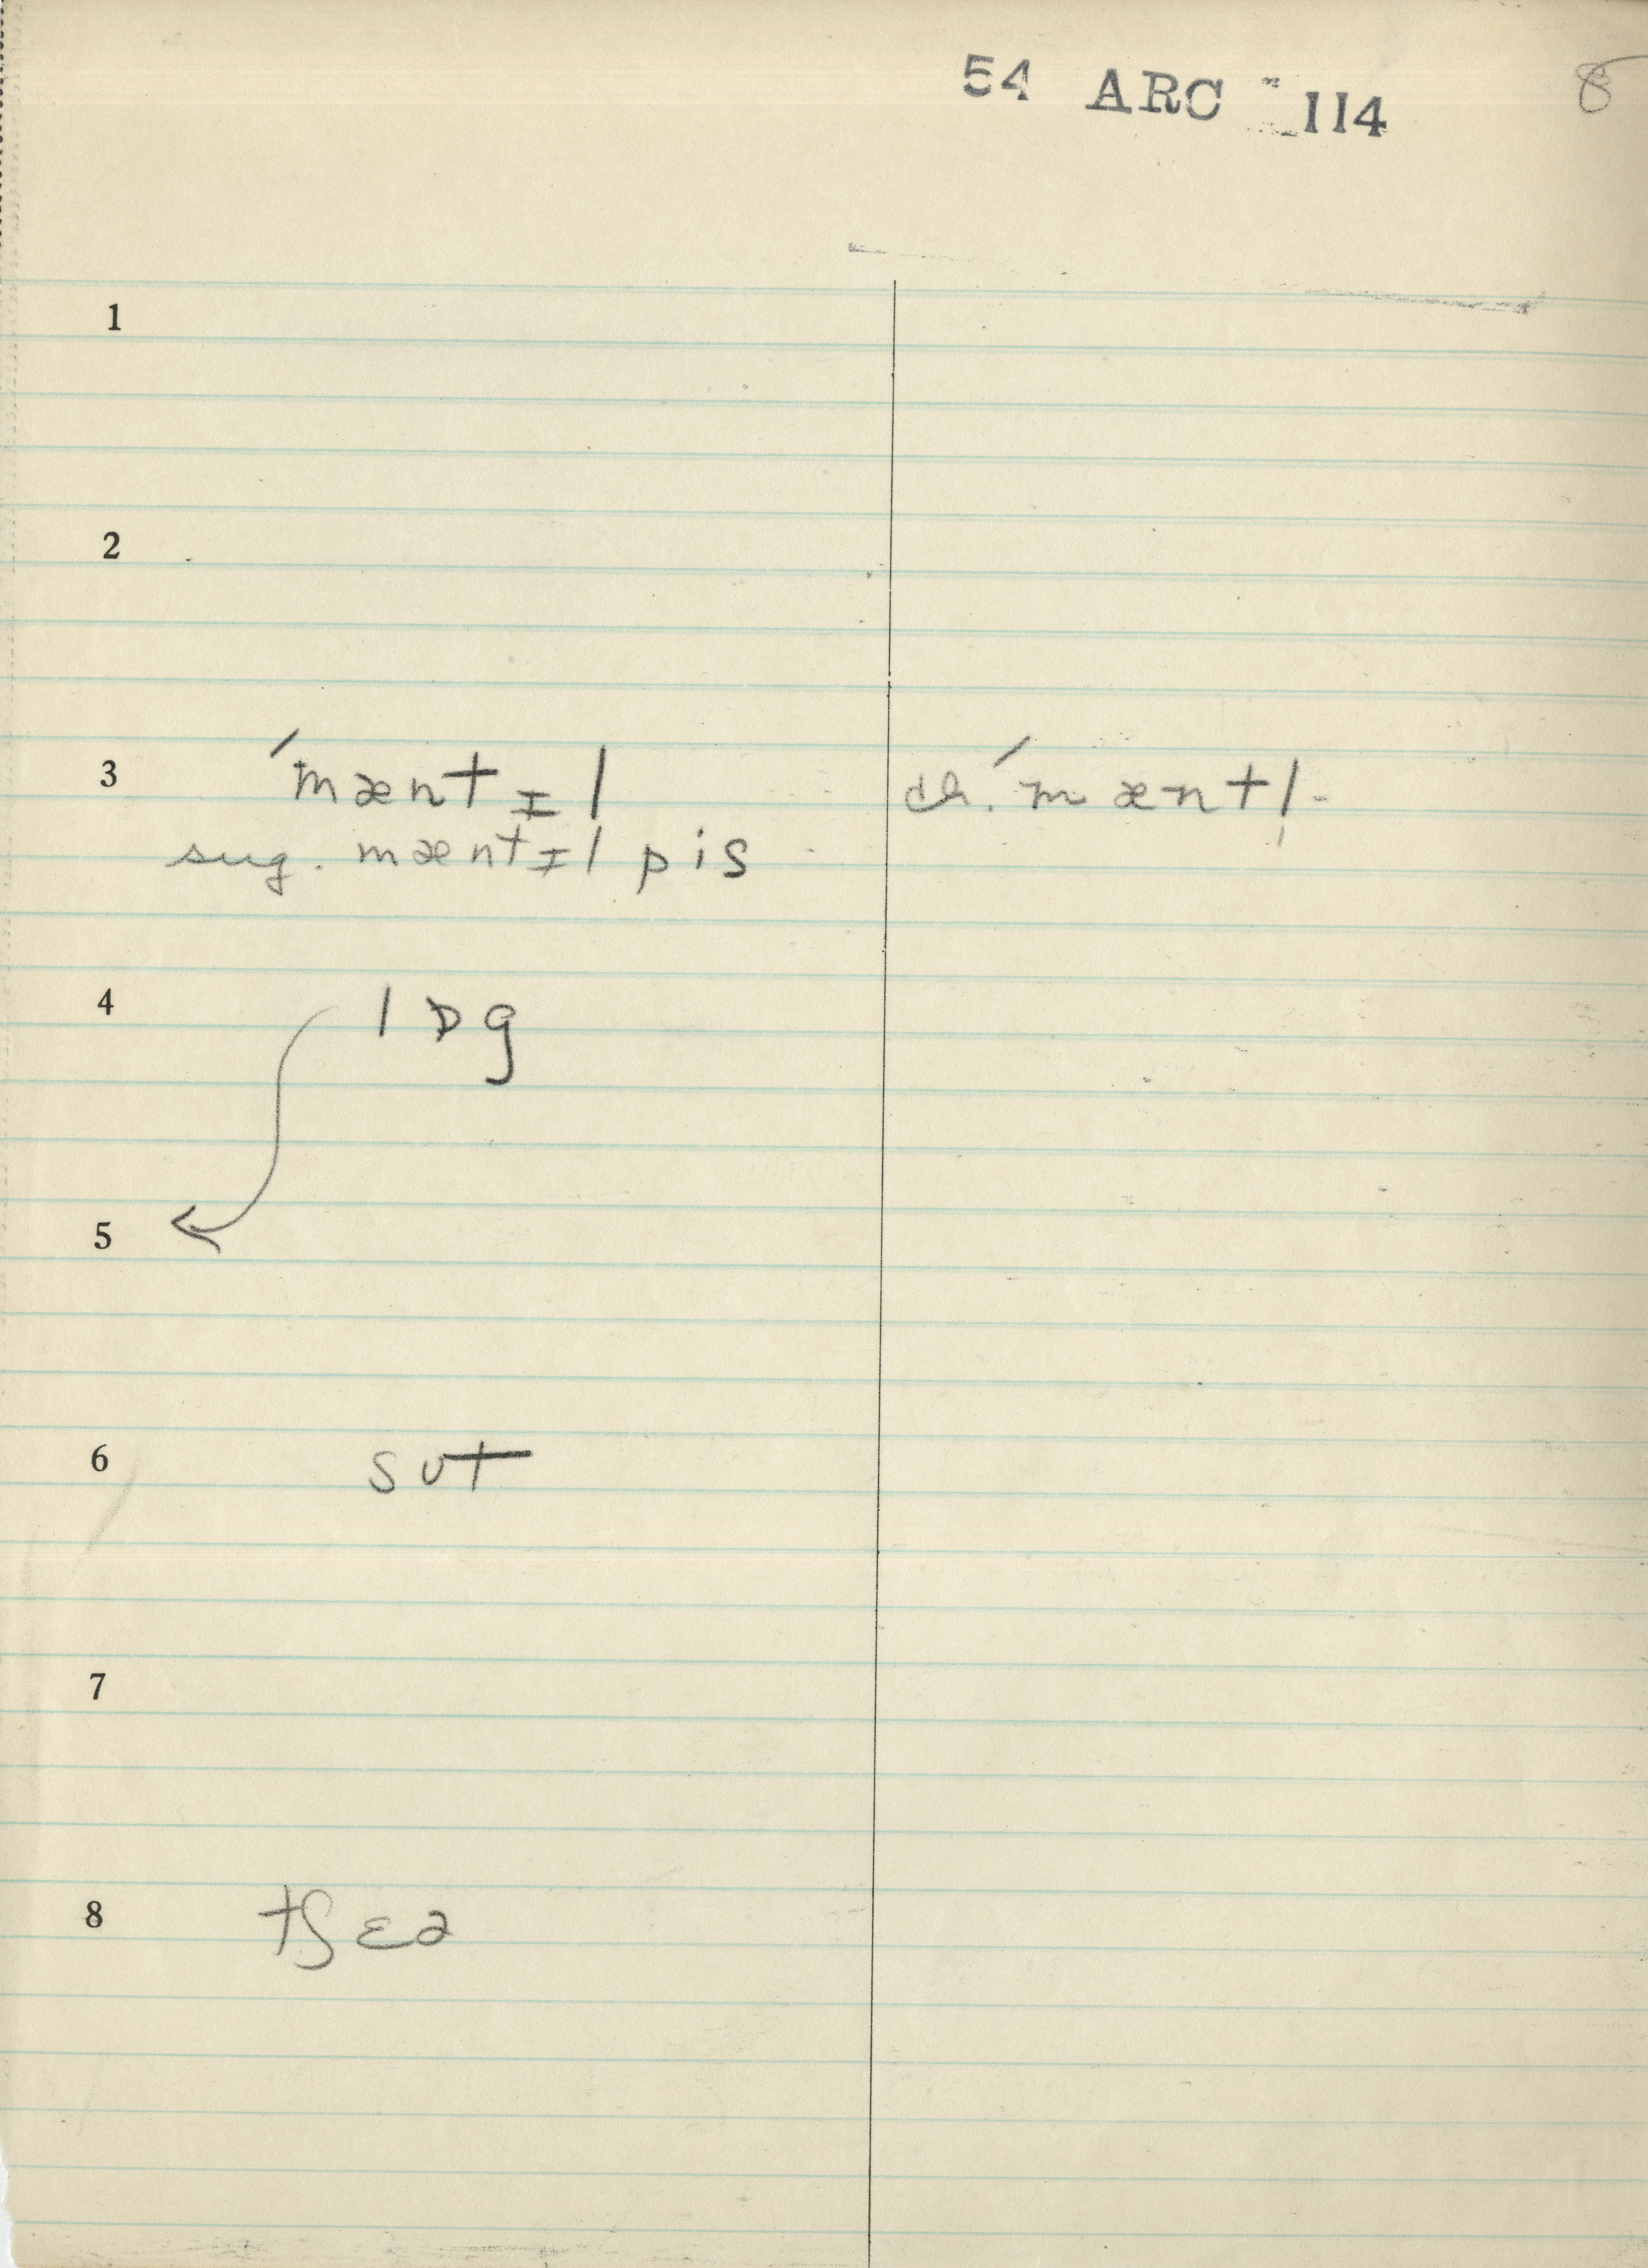 54 ARC 114 8
1
2
3 ˊmæntɪl ch. ˊmæntl̩
sug. mæntɪl pis
4 lɒg
5
6 sʊt
7
8 tʃɛə